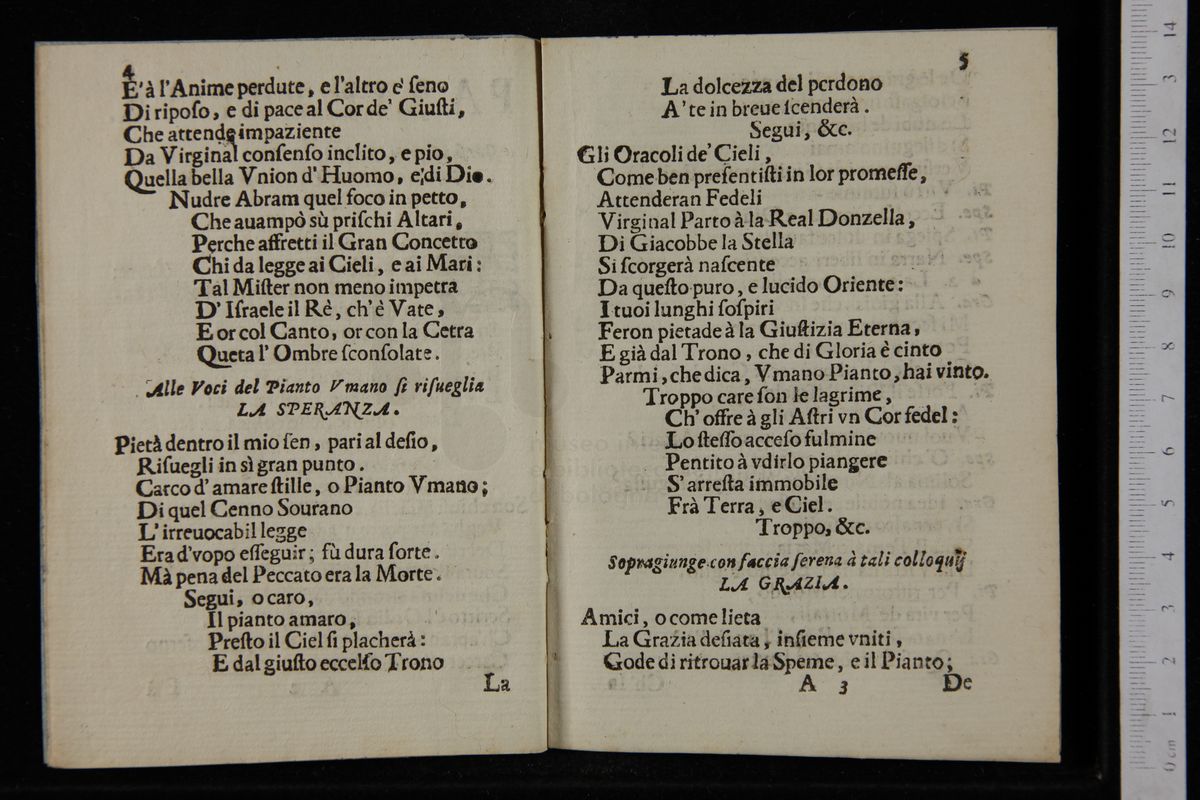 4
E' à l'Anime perdute, e l'altro e' ſeno
Di ripoſo, e di pace al Cor de' Giuſti,
Che attende impaziente
Da Virginal conſenſo inclito, e pio,
Quella bella Vnion d' Huomo, e di Dio.
Nudre Abram quel foco in petto,
Che auampò sù priſchi Altari,
Perche affretti il Gran Concetto
Chi da legge ai Cieli, e ai Mari:
Tal Miſter non meno impetra
D' Iſraele il Rè, ch' è Vate,
E or col Canto, or con la Cetra
Queta l' Ombre ſconſolate.
Alle Voci del Pianto Vmano ſi riſueglia
LA SPERANZA.
Pietà dentro il mio ſen, pari al deſio,
Riſuegli in sì gran punto.
Carco d' amare ſtille, o Pianto Vmano;
Di quel Cenno Sourano
L' irreuocabil legge
Era d'vopo eſſeguir; fù dura ſorte.
Mà pena del Peccato era la Morte.
Segui, o caro,
Il pianto amaro,
Preſto il Ciel ſi placherà:
E dal giuſto eccelſo Trono
La
5
La dolcezza del perdono
A' te in breue ſcenderà.
Segui, &c.
Gli Oracoli de' Cieli,
Come ben preſentiſti in lor promeſſe,
Attenderan Fedeli
Virginal Parto à la Real Donzella,
Di Giacobbe la Stella
Si ſcorgerà naſcente
Da queſto puro, e lucido Oriente:
I tuoi lunghi ſoſpiri
Feron pietade à la Giuſtizia Eterna,
E già dal Trono, che di Gloria è cinto
Parmi, che dica, Vmano Pianto, hai vinto.
Troppo care ſon le lagrime,
Ch' offre à gli Aſtri vn Cor fedel:
Lo ſteſſo acceſo fulmine
Pentito à vdirlo piangere
S' arreſta immobile
Frà Terra, e Ciel.
Troppo, &c.
Sopragiunge con faccia ſerena à tali colloquij
LA GRAZIA.
Amici, o come lieta
La Grazia deſiata, inſieme vniti,
Gode di ritrouar la Speme, e il Pianto;
A 3 De
0 cm 1 2 3 4 5 6 7 8 9 10 11 12 13 14